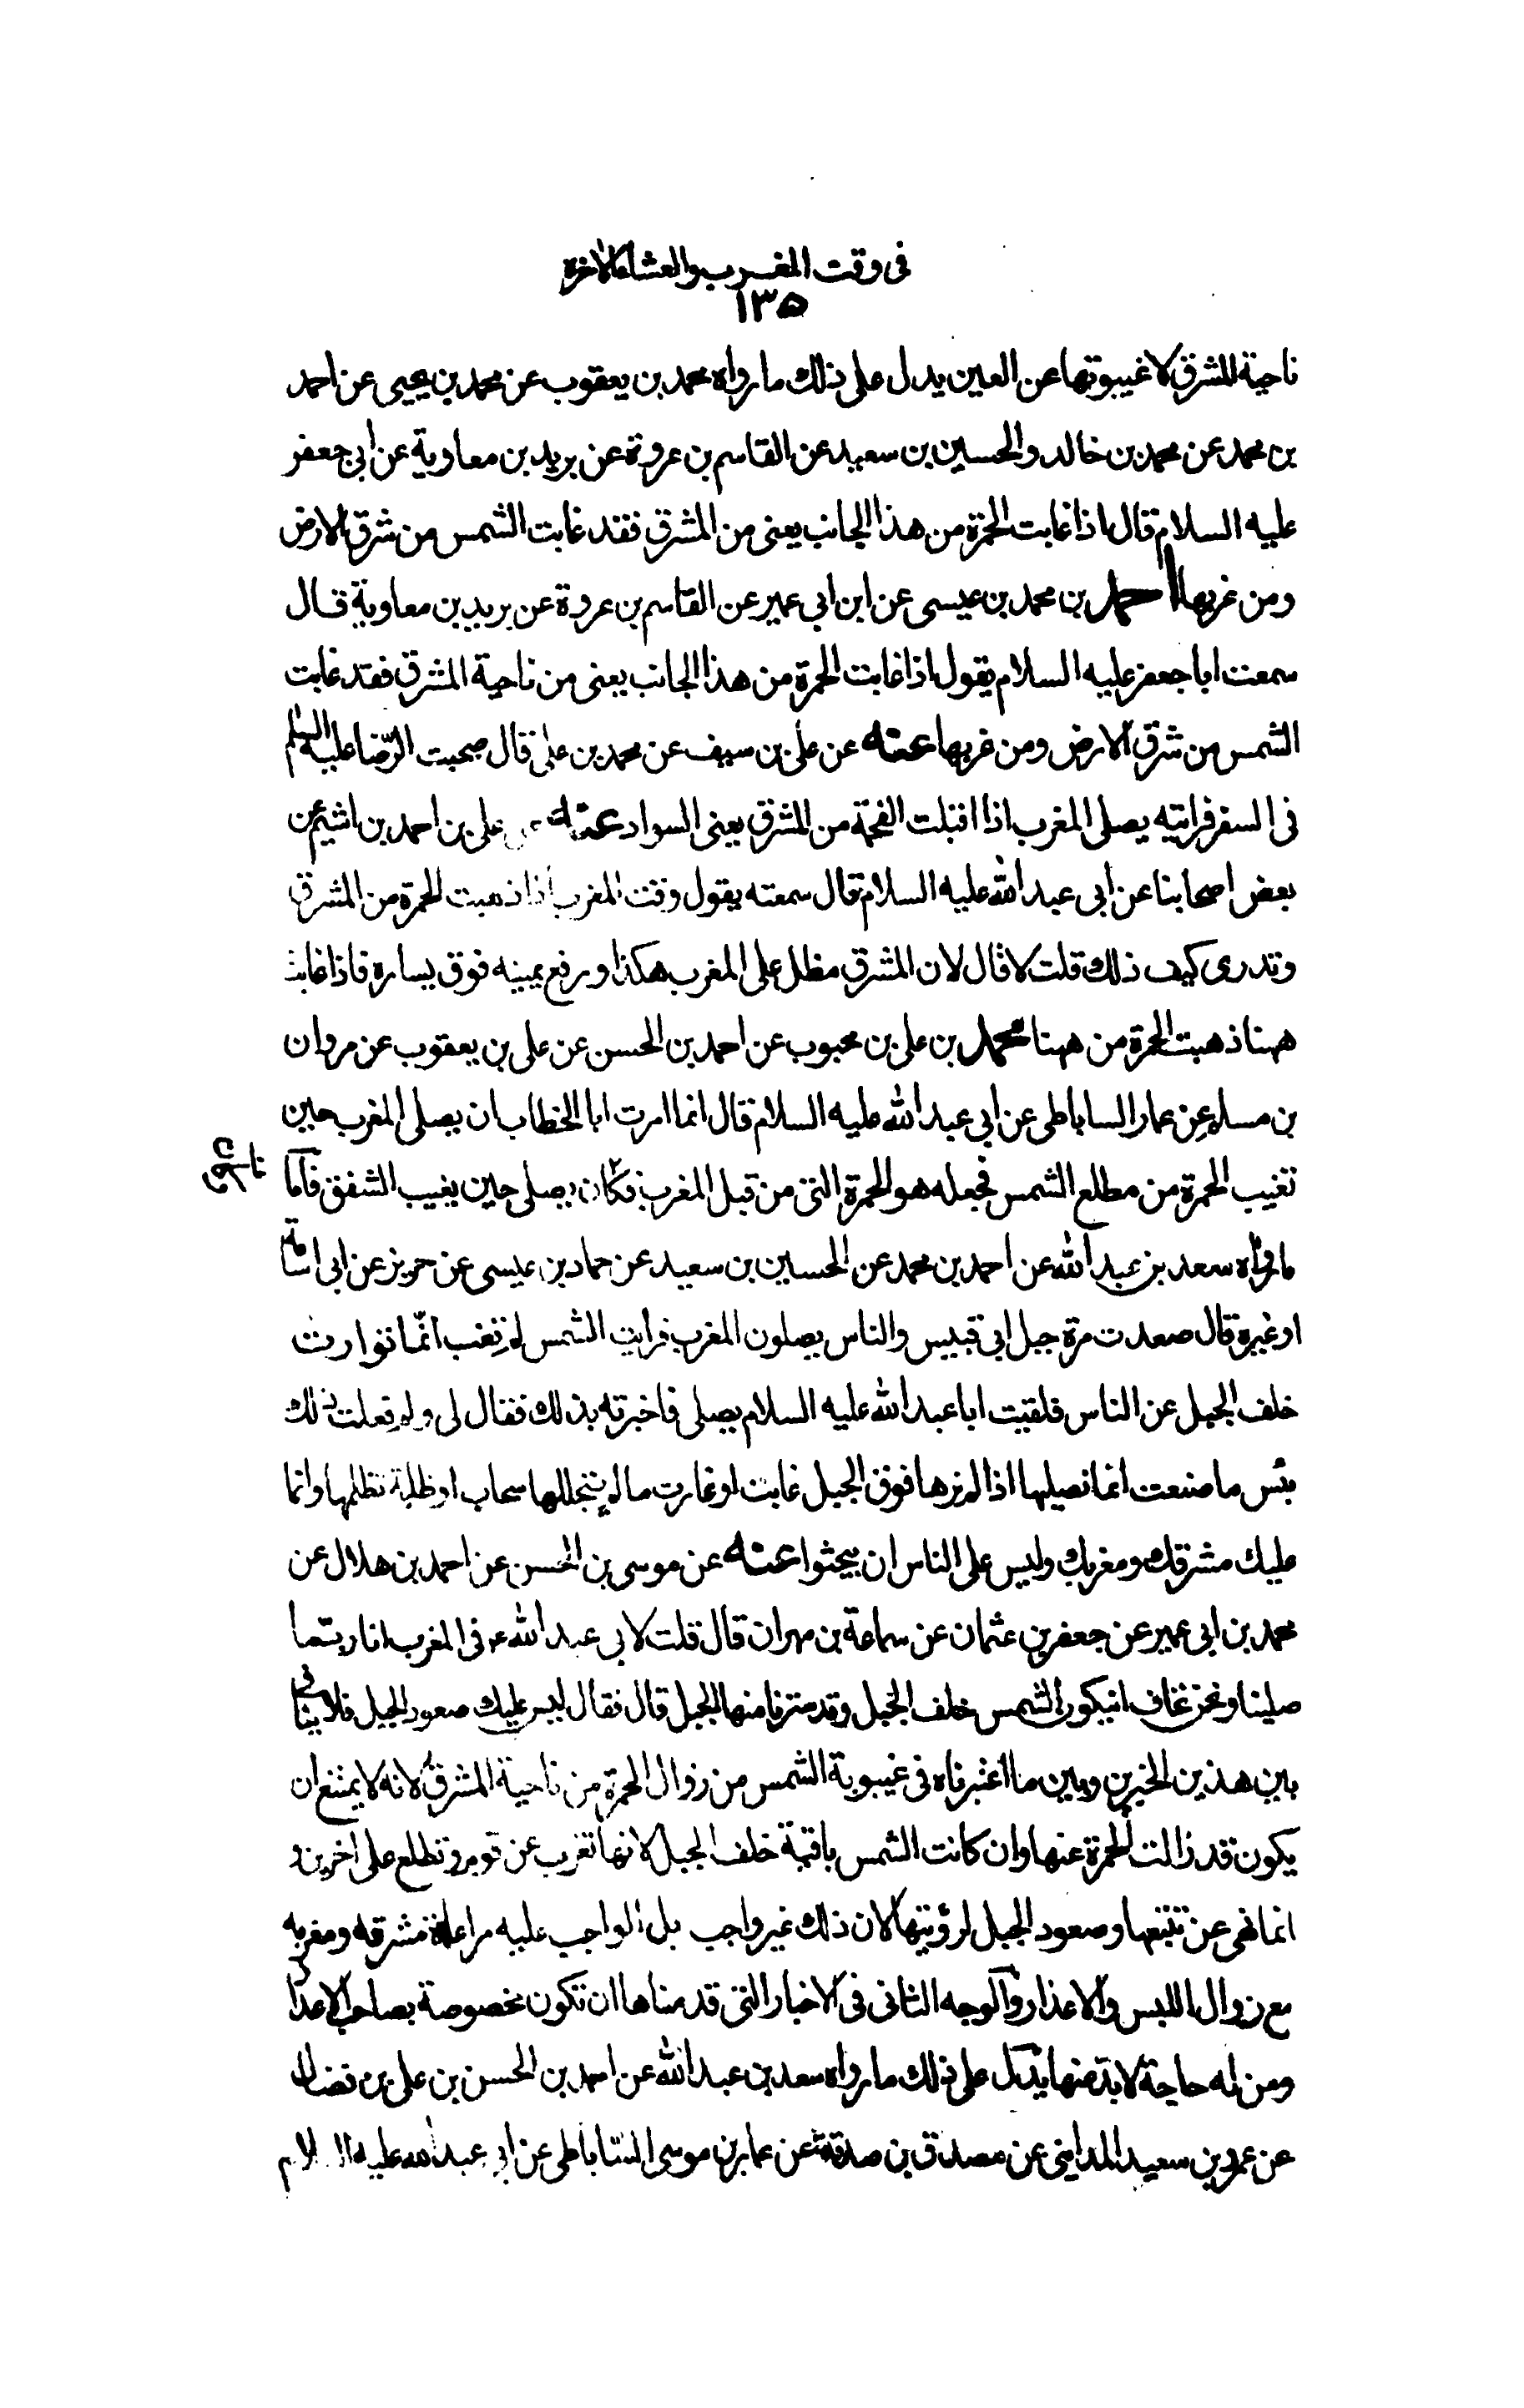 فى وقت المغرب والعشاء الاخرة
١٣٥
ناحية المشرق لا غيبوبتها عن العين يدل على ذلك ما رواه محمد بن يعقوب عن محمد بن يحيى عن احمد
بن محمد عن محمد بن خالد والحسين بن سعيد عن القاسم بن عروة عن بريد بن معاوية عن ابى جعفر
عليه السلام قال اذا غابت الحمرة من هذا الجانب يعنى من المشرق فقد غابت الشمس من شرق الارض
ومن غربها احمد بن محمد بن عيسى عن ابن ابى عمير عن القاسم بن عروة عن بريد بن معاوية قال
سمعت ابا جعفر عليه السلام يقول اذا غابت الحمرة من هذا الجانب يعنى من ناحية المشرق فقد غابت
الشمس من شرق الارض ومن غربها عنه عن على بن سيف عن محمد بن على قال صحبت الرضا عليه السلم
فى السفر فرايته يصلى المغرب اذا اقبلت الفحمة من المشرق يعنى السواد عنه عن على بن احمد بن اشيم عن
بعض اصحابنا عن ابى عبد الله عليه السلام قال سمعته يقول وقت المغرب اذا ذهبت الحمرة من المشرق
وتدرى كيف ذلك قلت لا قال لان المشرق مطل على المغرب هكذا ورفع يمينه فوق يساره فاذا غابت
ههنا ذهبت الحمرة من ههنا محمد بن على بن محبوب عن احمد بن الحسن عن على بن يعقوب عن مروان
بن مسلم عن عمار الساباطى عن ابى عبد الله عليه السلام قال انما امرت ابا الخطاب ان يصلى المغرب حين
تغيب الحمرة من مطلع الشمس فجعله هو الحمرة التى من قبل المغرب فكان يصلى حين يغيب الشفق فاما
ما رواه سعد بن عبد الله عن احمد بن محمد عن الحسين بن سعيد عن حماد بن عيسى عن حريز عن ابى اسامة
او غيره قال صعدت مرة جبل ابى قبيس والناس يصلون المغرب فرايت الشمس لم تغب انما توارت
خلف الجبل عن الناس فلقيت ابا عبد الله عليه السلام يصلى فاخبرته بذلك فقال لى ولم فعلت ذلك
بئس ما صنعت انما تصليها اذا لم ترها فوق الجبل غابت او غارت ما لم يتجللها سحاب او ظلمة تظلمها وانما
عليك مشرقك ومغربك وليس على الناس ان يبحثوا عنه عن موسى بن الحسن عن احمد بن هلال عن
محمد بن ابى عمير عن جعفر بن عثمان عن سماعة بن مهران قال قلت لابى عبد الله ع فى المغرب انا ربما
صلينا ونحن نخاف ان يكون الشمس خلف الجبل وقد سترنا منها الجبل قال فقال ليس عليك صعود الجبل فلا ينافى
بين هذين الخبرين وبين ما اعتبرناه فى غيبوبة الشمس من زوال الحمرة من ناحية المشرق لانه لا يمتنع ان
يكون قد زالت الحمرة عنها وان كانت الشمس باقية خلف الجبل لانها تغرب عن قوم وتطلع على اخرين و
انما نهى عن تتبعها وصعود الجبل لرؤيتها لان ذلك غير واجب بل الواجب عليه مراعاة مشرقه ومغربه
مع زوال اللبس والاعذار والوجه الثانى فى الاخبار التى قدمناها ان تكون مخصوصة بصاحب الاعذار
ومن له حاجة لا بد منها يدل على ذلك ما رواه سعد بن عبد الله عن احمد بن الحسن بن على بن فضال
عن عمرو بن سعيد المداينى عن مصدق بن صدقة عن عمار بن موسى الساباطى عن ابى عبد الله عليه السلام